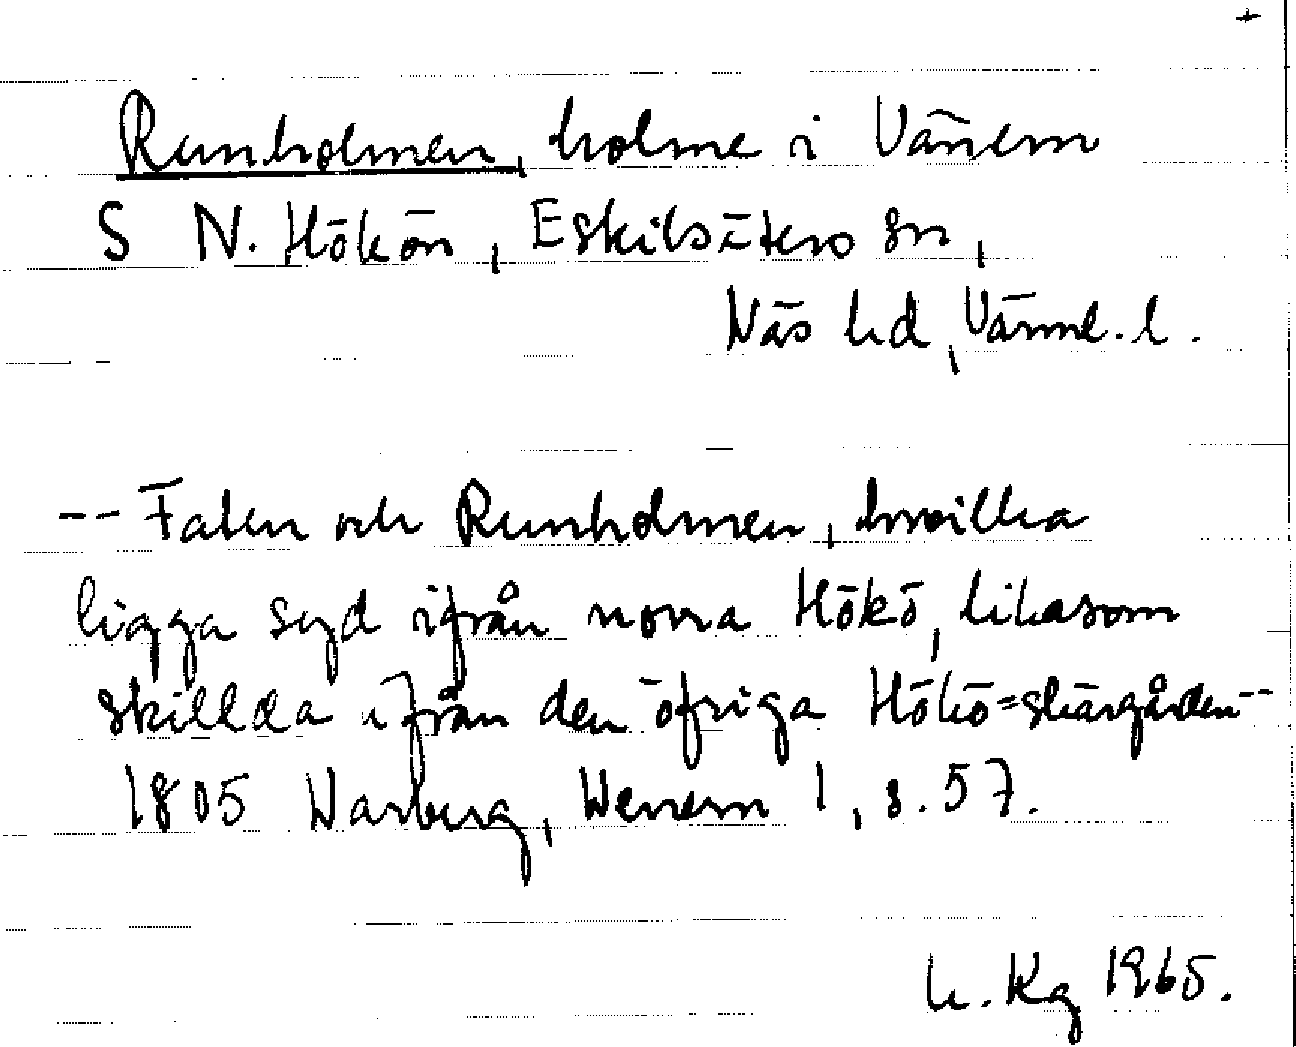 +
Runholmen, holme i Vänern
S N. Hökön, Eskilsäters sn,
Näs hd, Värml. l.
-- Falen och Runholmen, hvilka
ligga syd ifrån norra Hökö, likasom
skillda ifrån den öfriga Hökö=skärgården --
1805 Warberg, Wenern 1, s. 57.
L. Kg 1965.